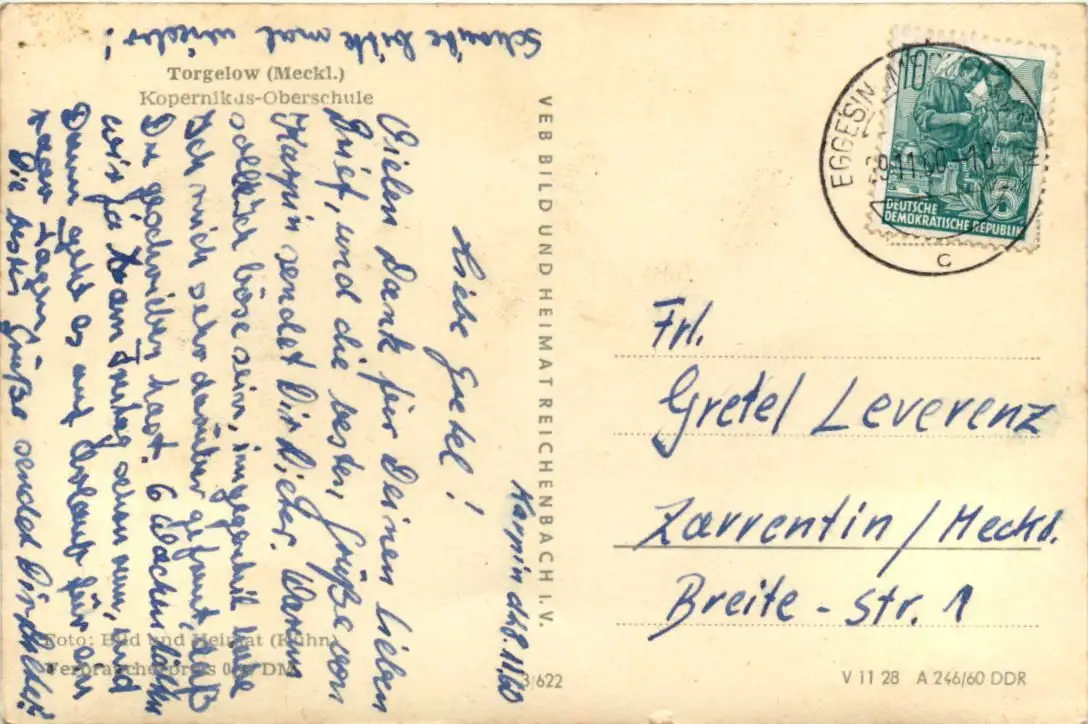 Torgelow (Meckl.)
Kopernikus-Oberschule
Karpin d. 8.11.60
Liebe Gretel!
Vielen Dank für Deinen lieben
Brief, und die besten Grüße von
Karpin sendet Dir Dieter. Warum
sollte ich böse sein, imgegenteil habe
Ich mich sehr darüber gefreut, daß
Du geschrieben hast. 6 Wochen
wir ja Freitag schon rum, und
Dann geht es auf Urlaub für ein
paar Tagen,
Die besten Grüße sendet Dir Dieter.
Schreibe bitte mal wieder!
Foto: Bild und Heimat (Kühn)
Verbraucherpreis DM
VEB BILD UND HEIMAT REICHENBACH I. V.
EGGESIN
9.11.60-10
c
10
5
DEUTSCHE
DEMOKRATISCHE REPUBLIK
Frl.
Gretel Leverenz
Zarrentin/Meckl.
Breite-Str. 1
3/622
V 11 28 A 246/60 DDR